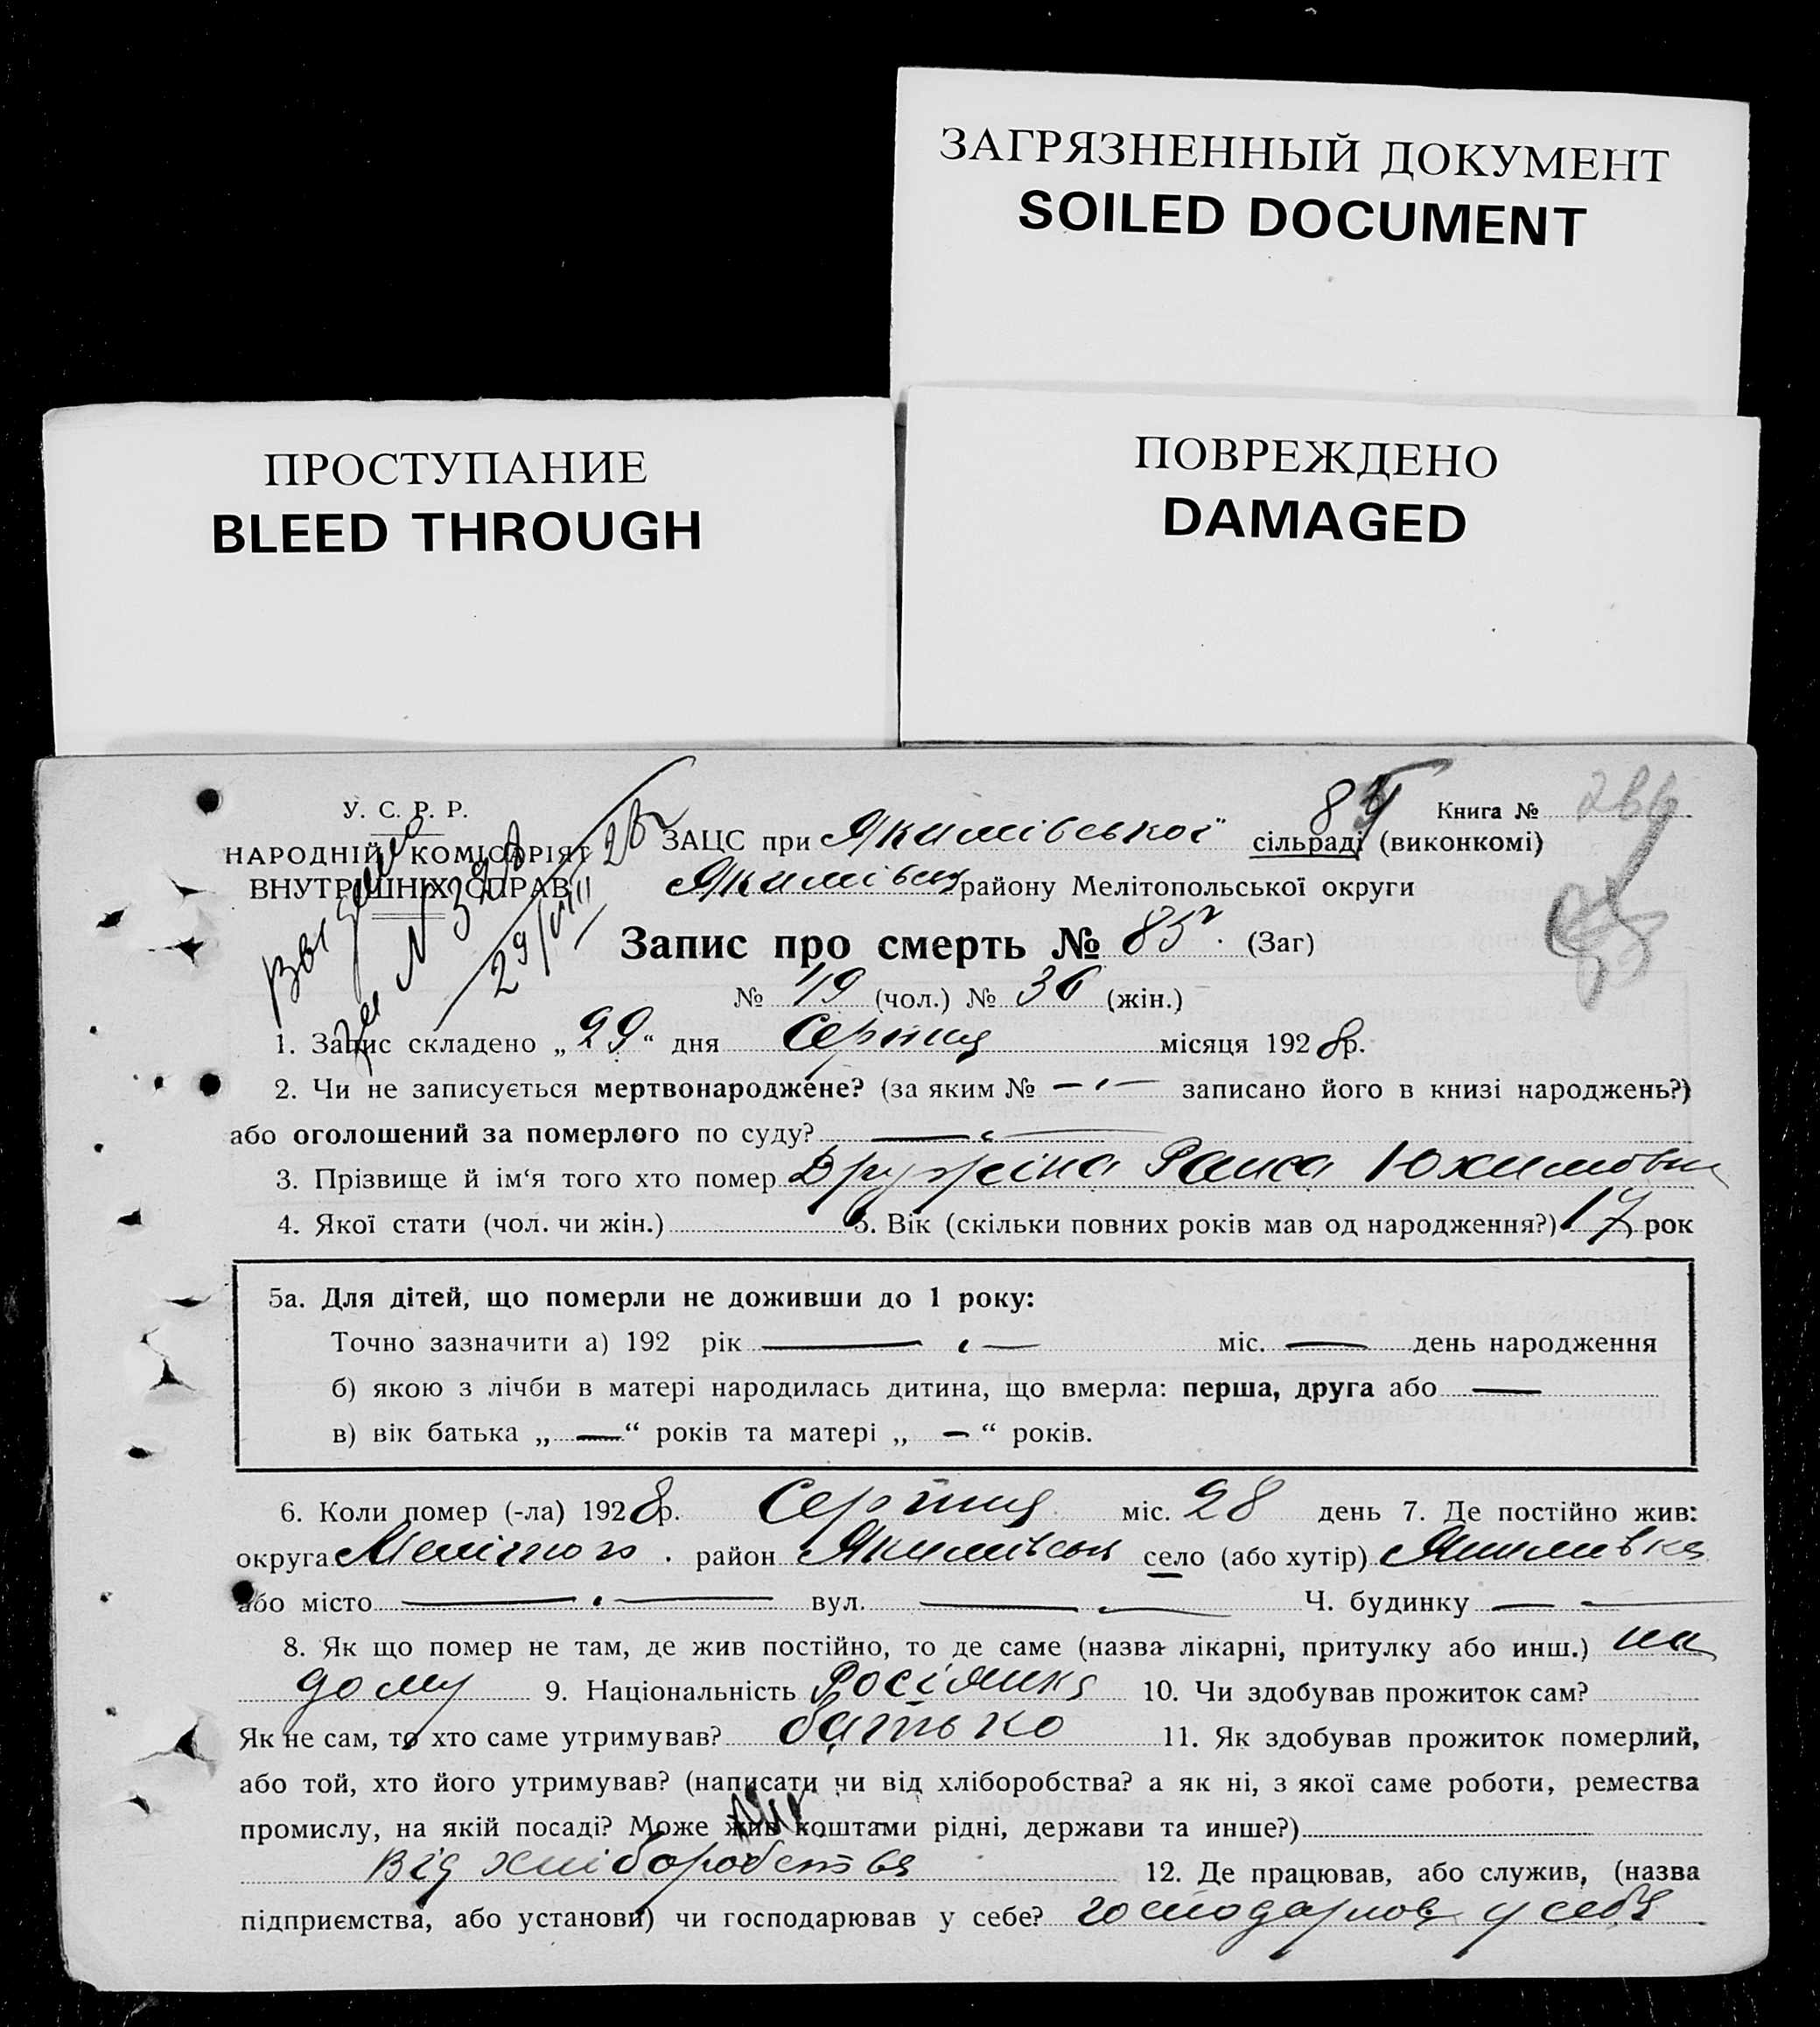 ЗАГРЯЗНЕННЫЙ ДОКУМЕНТ
SOILED DOCUMENT
ПРОСТУПАНИЕ
BLEED THROUGH
ПОВРЕЖДЕНО
DAMAGED
У. С. Р. Р.
НАРОДНІЙ КОМІСАРІЯТ
ВНУТРІШНІХ СПРАВ
29/VIII 28
Книга №
ЗАЦС при Якимівської сільраді (виконкомі)
Якимівск району Мелітопольської округи
Запис про смерть № 85 (Заг)
№ 49 (чол.) № 36 (жін.)
1. Запис складено „29“ дня Серпня місяця 1928р.
2. Чи не записується мертвонароджене? (за яким № — записано його в книзі народжень?)
або оголошений за померлого по суду? —
3. Прізвище й ім‘я того хто помер Дружеіна Раиса Юхимовна
4. Якої стати (чол. чи жін.) 5. Вік (скільки повних років мав од народження?) 17 рок
5а. Для дітей, що померли не доживши до 1 року:
Точно зазначити а) 192 рік — міс. — день народження
б) якою з лічби в матері народилась дитина, що вмерла: перша, друга або —
в) вік батька „—“ років та матері „—“ років.
6. Коли помер (-ла) 1928р. Серпня міс. 28 день 7. Де постійно жив:
округа Мелітоп. район Якимівськ село (або хутір) Якимівка
або місто — вул. — Ч. будинку —
8. Як що помер не там, де жив постійно, то де саме (назва лікарні, притулку або инш.) на
дому 9. Національність Росіянка 10. Чи здобував прожиток сам?
Як не сам, то хто саме утримував? батько 11. Як здобував прожиток померлий,
або той, хто його утримував? (написати чи від хліборобства? а як ні, з якої саме роботи, ремества
промислу, на якій посаді? Може жив коштами рідні, держави та инше?)
від хліборобства 12. Де працював, або служив, (назва
підприємства, або установи) чи господарював у себе? господарював у себе